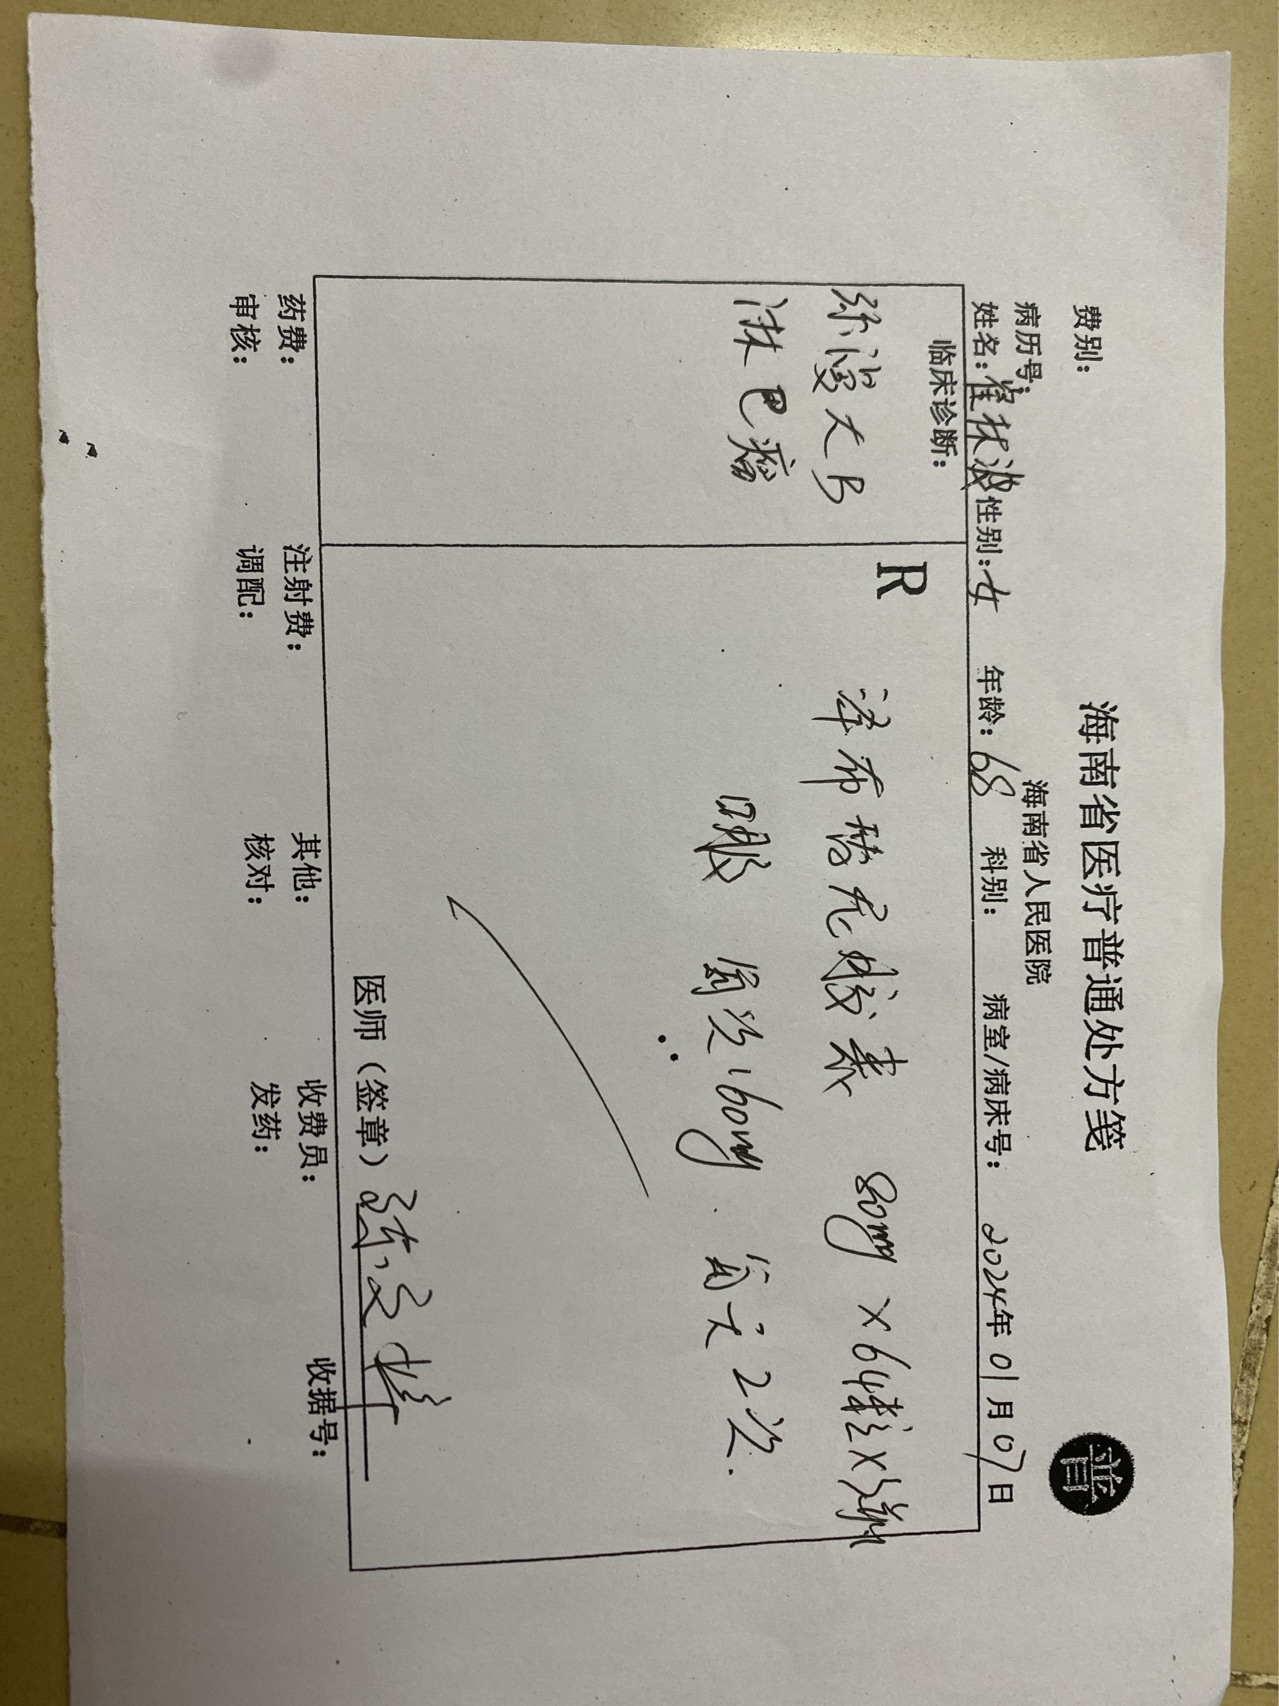 海南省医疗普通处方笺
普
费别:
海南省人民医院
病历号:
姓名: 崔状波 性别: 女 年龄: 68 科别: 病室/病床号: 2024年01月07日
临床诊断:
弥漫大B
淋巴瘤
R
泽布替尼胶囊 80mg×64粒×3瓶
口服 每次160mg 每天2次.
医师(签章)
药费: 注射费: 其他: 收费员: 收据号:
审核: 调配: 核对: 发药: